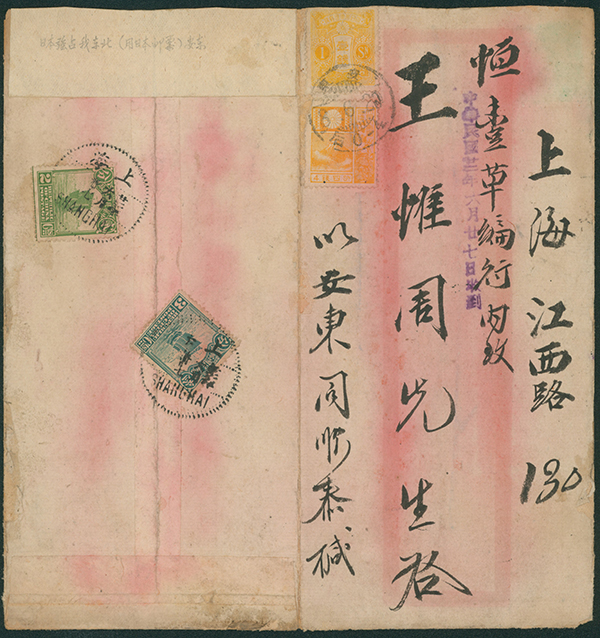 上海江西路130
恒壹草編行內致
王惟周先生啓
以安東同順泰緘
中華民國廿三年六月廿七日收到
上海
SHANGHAI
2
上海
SHANGHAI
3